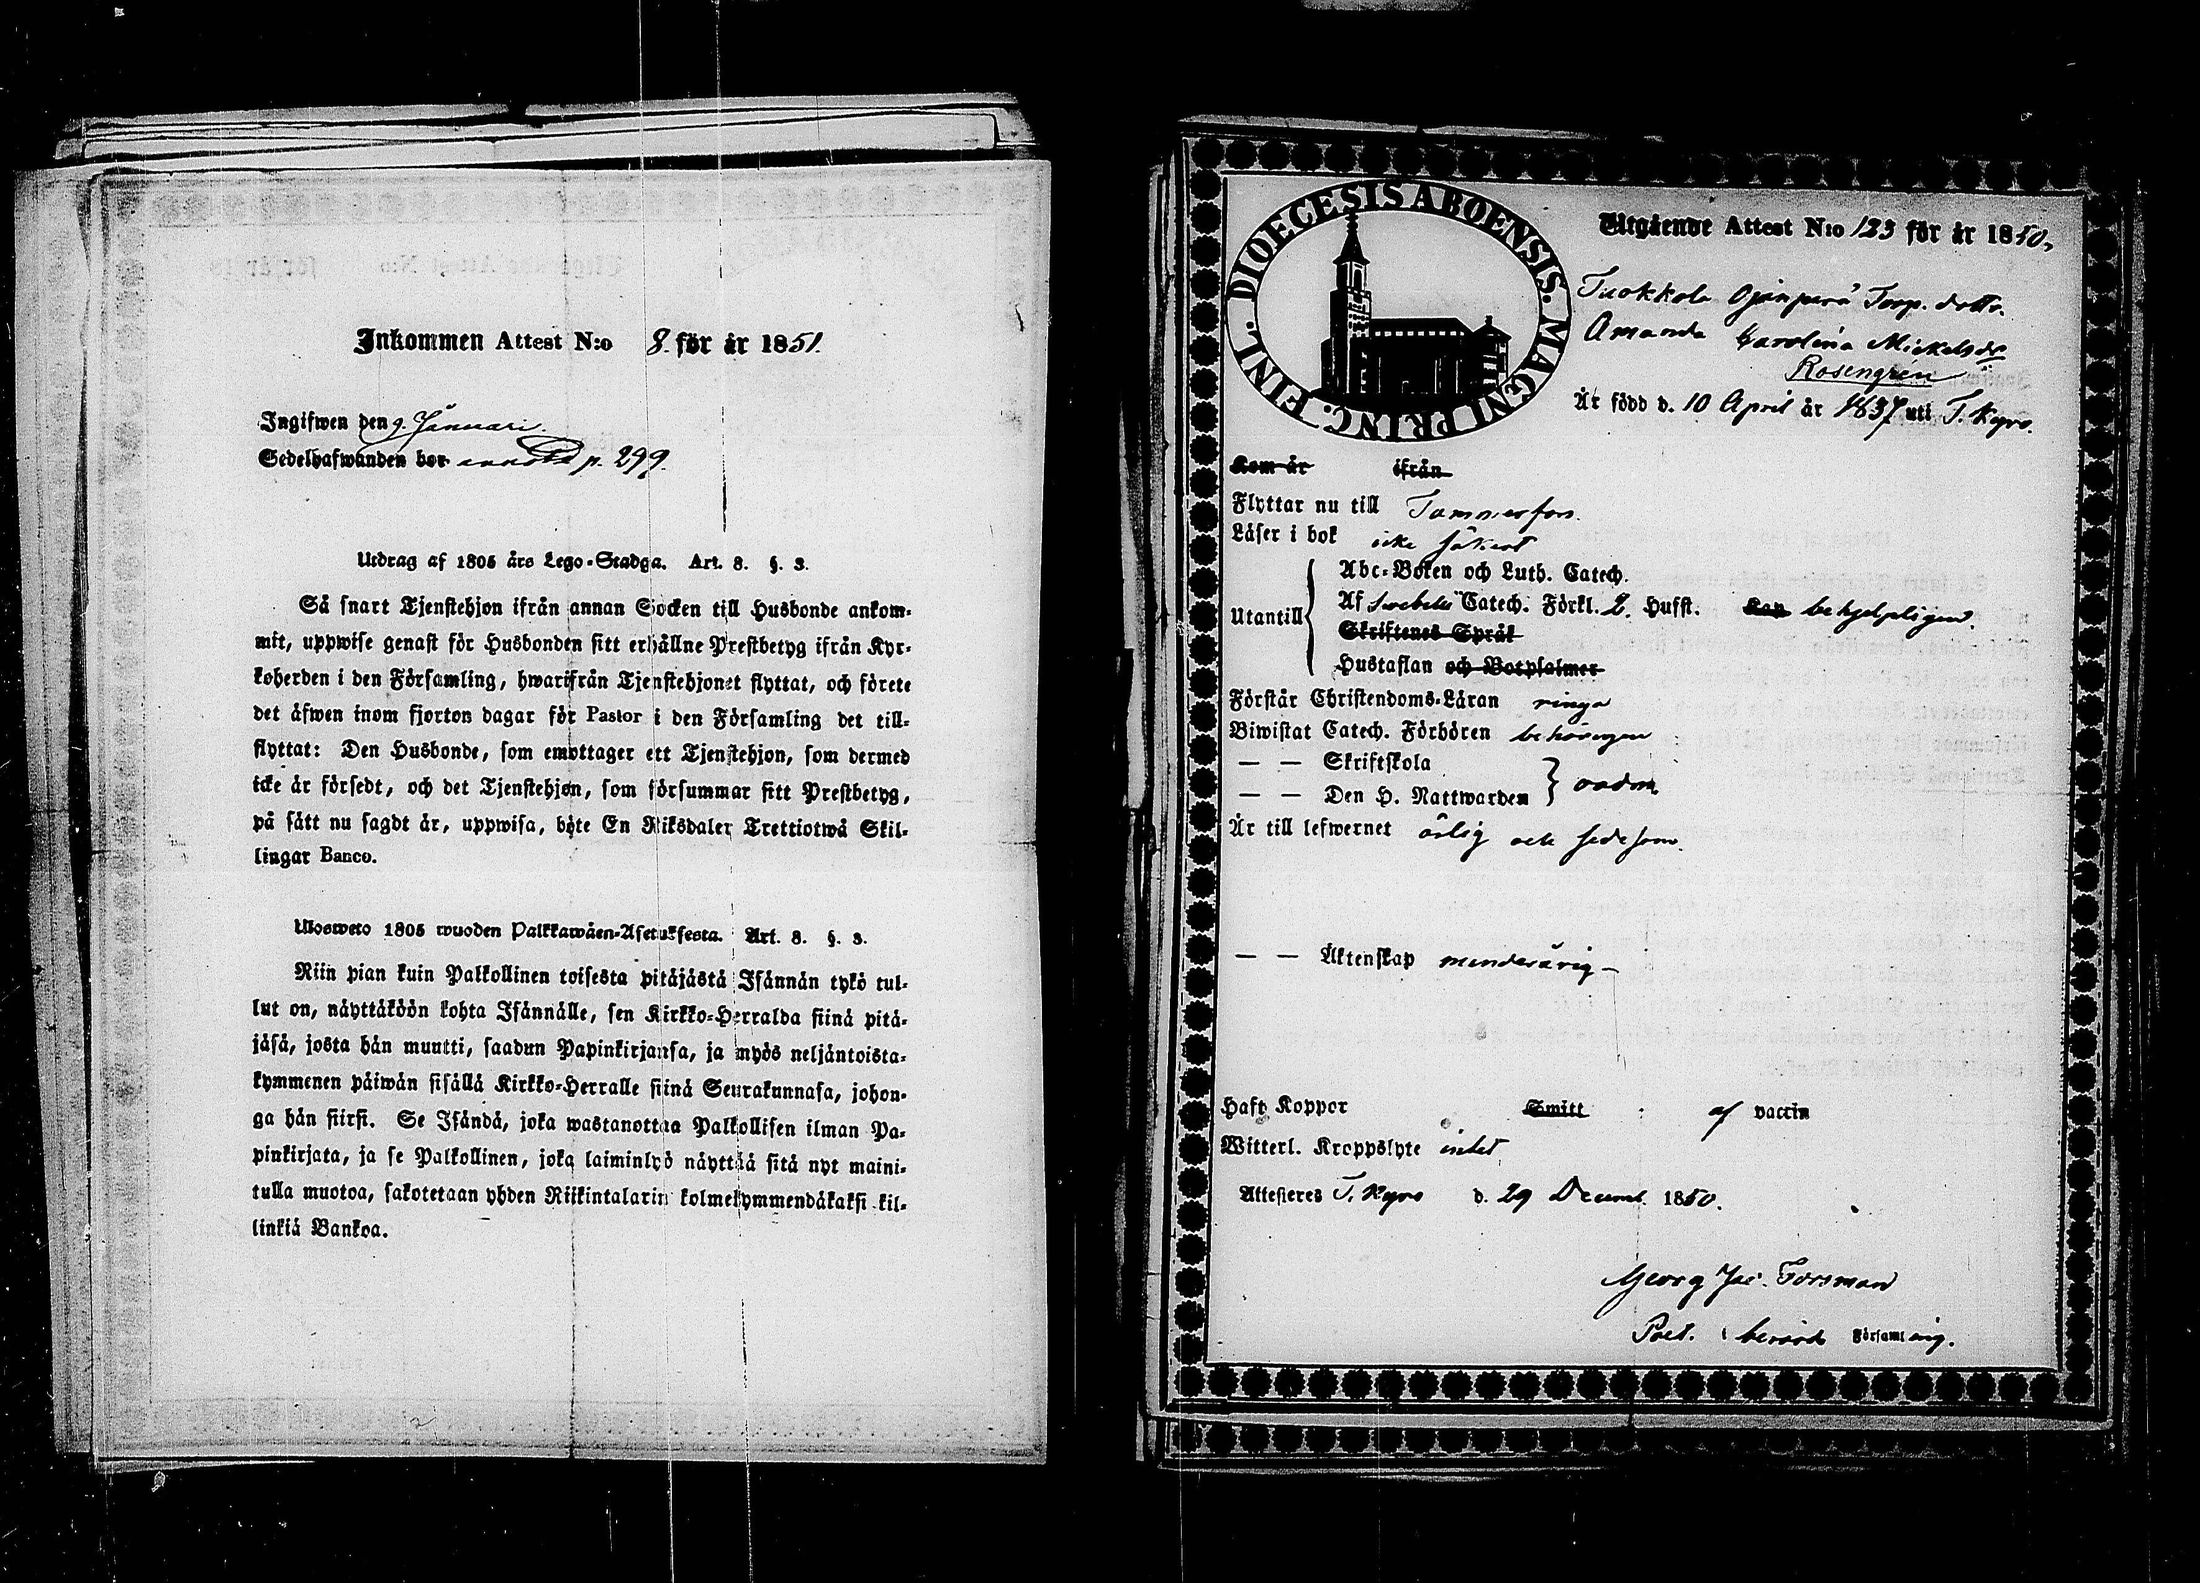 Inkommen Attest N:o 8. för år 1851.
Ingifwen den 9. Januari.
Sedelhafwanden bor p. 299.
Utdrag af 1805 års Lego-Stadga. Art. 8. §. 3.
Så snart Tjenstehjon ifrån annan Socken till Husbonde ankom-
mit, uppwise genast för Husbonden sitt erhållne Prestbetyg ifrån Kyr-
koherden i den Församling, hwarifrån Tjenstehjonet flyttat, och förete
det äfwen inom fjorton dagar för Pastor i den Församling det till-
flyttat: Den Husbonde, som emottager ett Tjenstehjon, som dermed
icke är försedt, och det Tjenstehjon, som försummar sitt Prestbetyg,
på sätt nu sagdt är, uppwisa, böte En Riksdaler Trettiotwå Skil-
lingar Banco.
Ulosweto 1805 wuoden Palkkawäen-Asetuksesta. Art. 8. §. 3.
Niin pian kuin Palkollinen toisesta pitäjästä Isännän tykö tul-
lut on, näyttäköön kohta Isännälle, sen Kirkko-Herralda siinä pitä-
jäsä, josta hän muutti, saadun Papinkirjansa, ja myös neljäntoista-
kymmenen päiwän sisällä Kirkko-Herralle siinä Seurakunnasa, johon-
ga hän siirsi. Se Isändä, joka wastanottaa Palkollisen ilman Pa-
pinkirjata, ja se Palkollinen, joka laiminlyö näyttää sitä nyt maini-
tulla muotoa, sakotetaan yhden Riikintalarin kolmekymmendäkaksi kil-
linkiä Bankoa.
DIOECESIS ABOENSIS. MAGNI PRINC. FINL.
Utgående Attest N:o 123 för år 1850,
Tuokkola Ojanperä Torp. dottr.
Amanda Carolina Mickelsdr
Rosengren
Är född d. 10 April år 1837 uti T. Kyro.
Kom år ifrån
Flyttar nu till Tammerfors.
Läser i bok icke säkert
Utantill
Abc-Boken och Luth. Catech.
Af Swebelii Catech. Förkl. 2. Hufst. Kan behjelpligen.
Skriftenes Språk
Hustaflan och Botpsalmer
Förstår Christendoms-Läran ringa
Biwistat Catech. Förhören behörigen
— — Skriftskola
— — Den H. Nattwarden } oadm.
Är till lefwernet ärlig och sedesam.
— — Äktenskap minderårig –
Haft Koppor Smitt af vaccin
Witterl. Kroppslyte intet
Attesteres T. Kyro d. 29 Decemb. 1850.
Georg Jac. Forsman
Past. i berörd Församling.